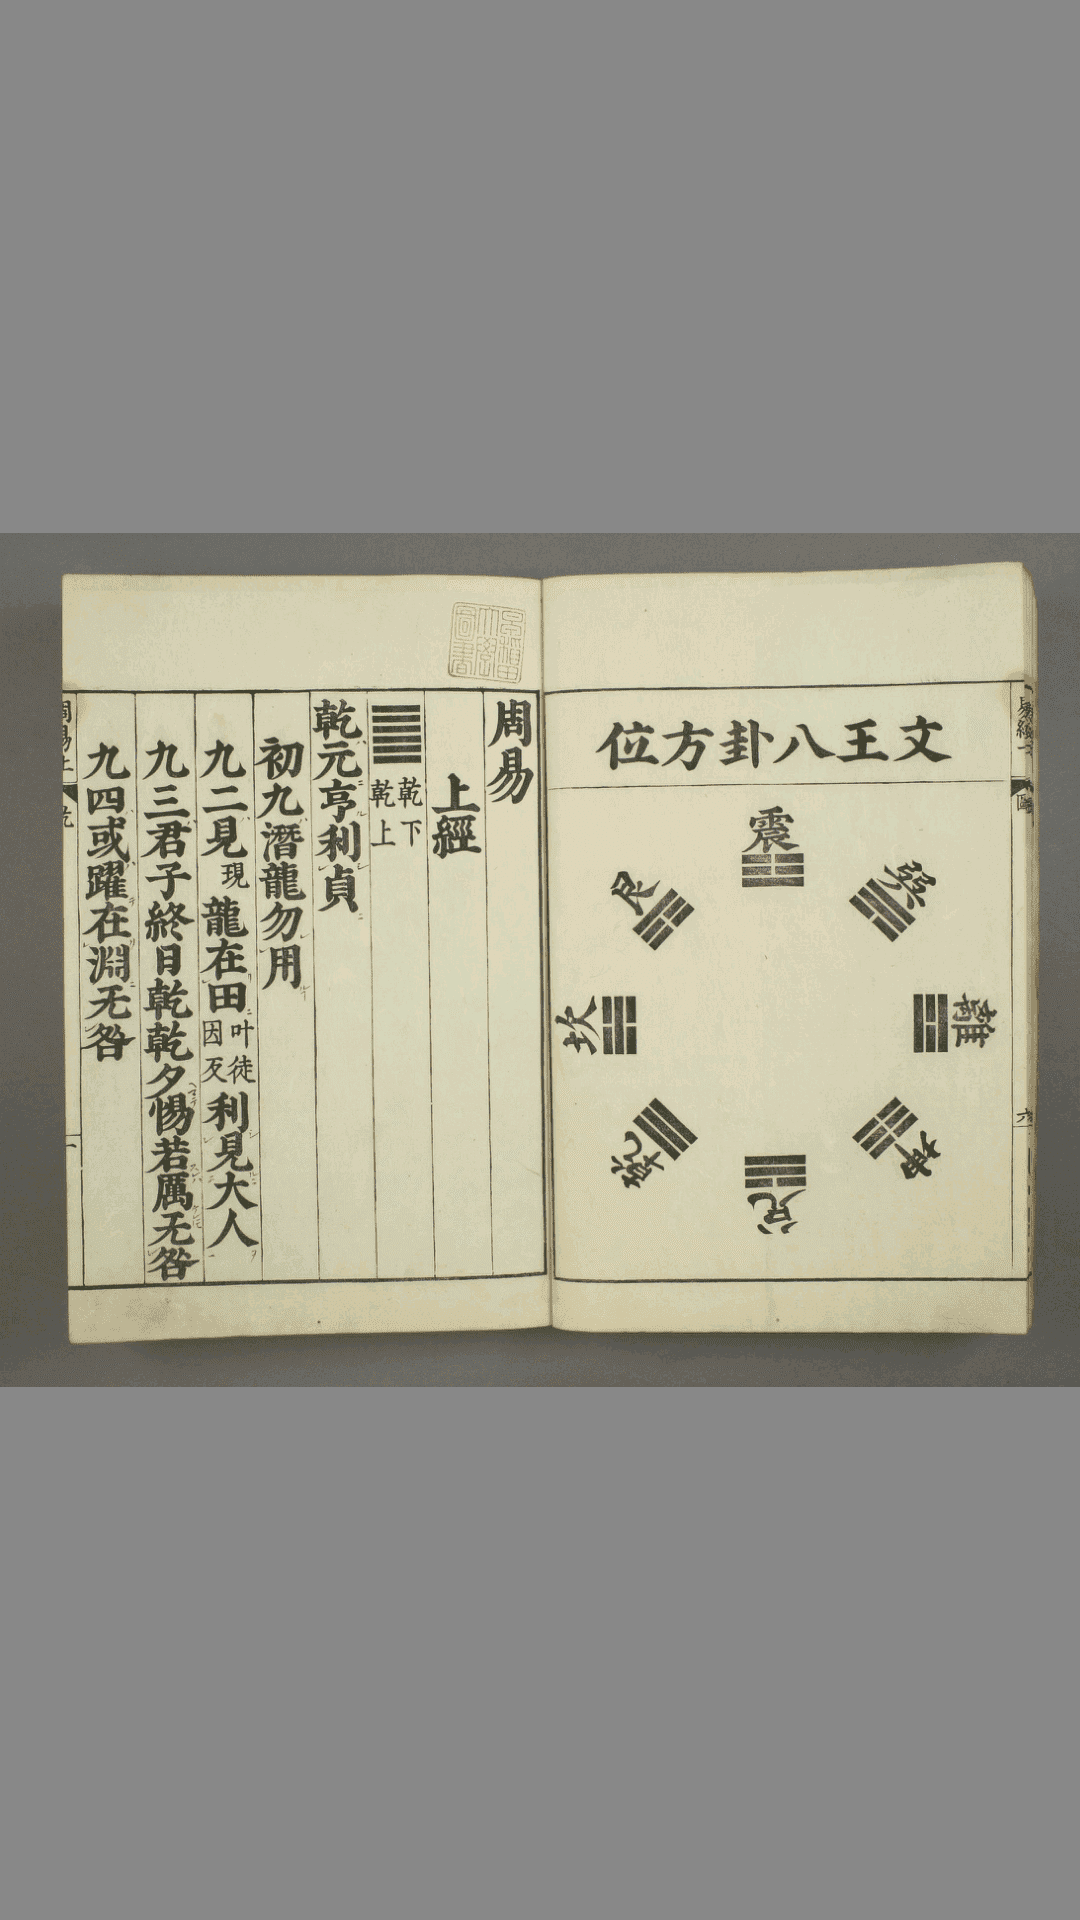 文王八卦方位
震
巽
離
坤
兌
乾
坎
艮
周易
上經
乾下
乾上
乾元亨利貞
初九潛龍勿用
九二見現龍在田叶徒因反利見大人
九三君子終日乾乾夕惕若厲无咎
九四或躍在淵无咎
周易上
乾
一
六